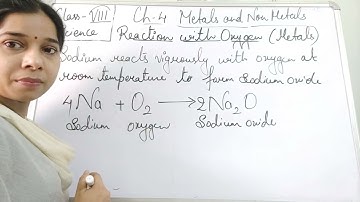 Class-VIII Ch-4 Metals and Non Metals
Science Reaction with Oxygen (Metals)
Sodium reacts vigreously with oxygen at
room temperature to form Sodium Oxide
4Na + O2 → 2Na2O
Sodium oxygen Sodium oxide